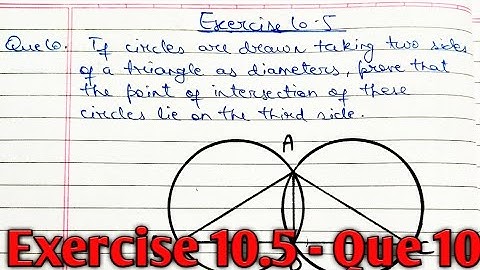 Exercise 10.5
Que 10. If circles are drawn taking two sides
of a triangle as diameters, prove that
the point of intersection of these
circles lie on the third side.
A
Exercise 10.5 - Que 10